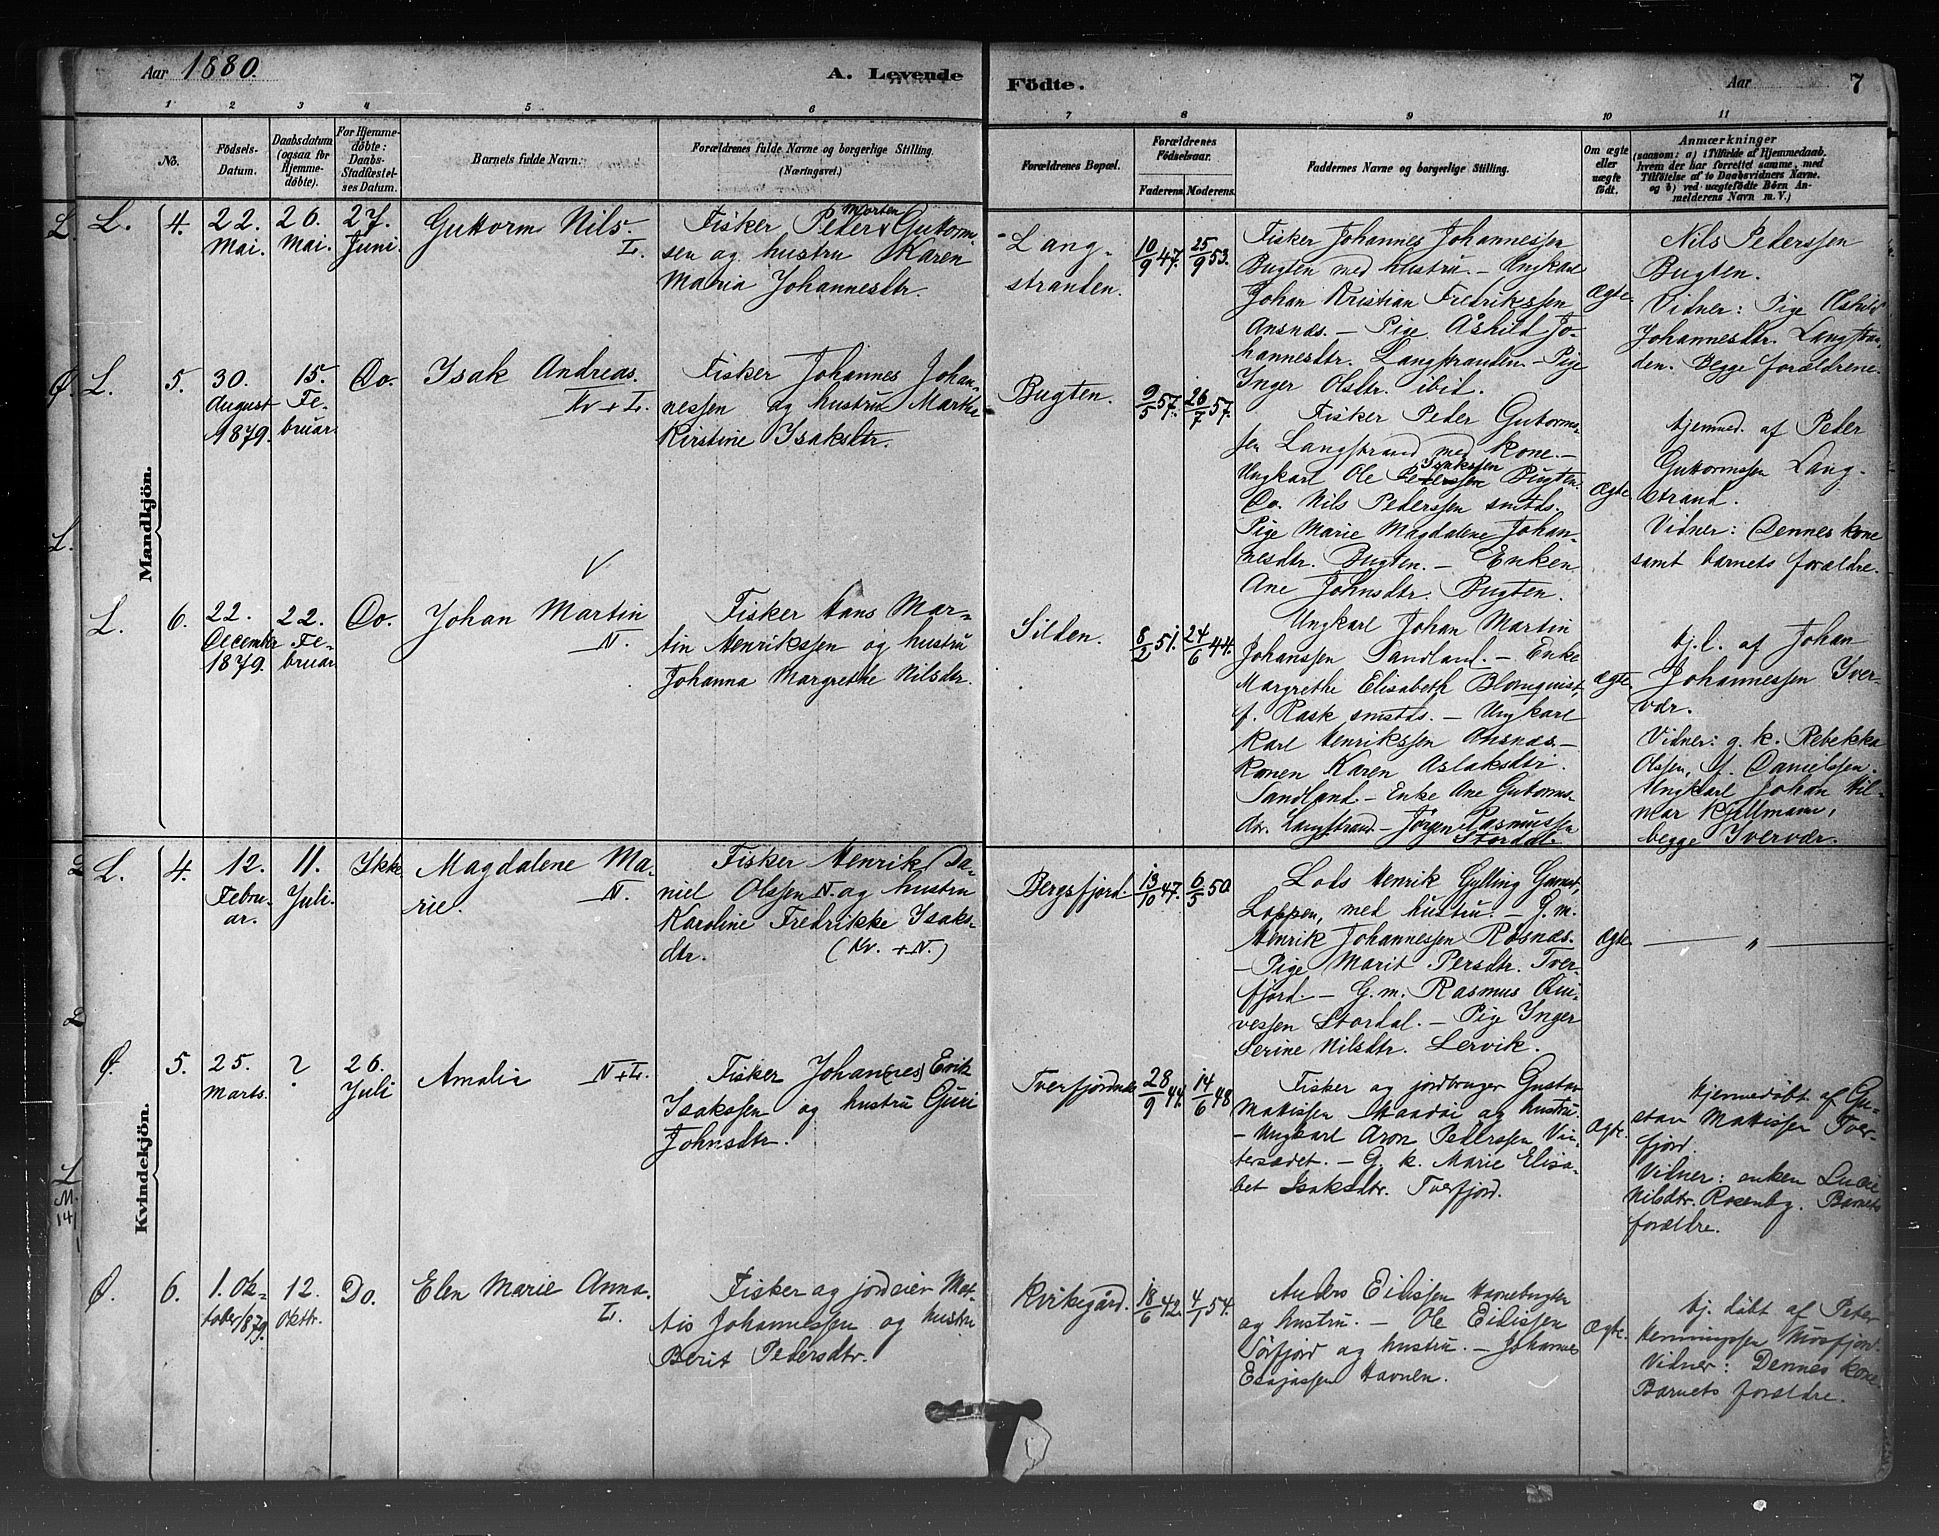 Aar 1880.
A. Levende
Födte.
Aar
7
1 2 3 4 5 6 7 8 9 10 11
No.
Födsels-
Datum.
Daabsdatum
(ogsaa for
Hjemme-
døbte).
For Hjemme-
døbte:
Daabs-
Stadfæstel-
ses Datum.
Barnets fulde Navn.
Forældrenes fulde Navne og borgerlige Stilling.
(Næringsvei.)
Forældrenes Bopæl.
Forældrenes
Födselsaar.
Faderens Moderens.
Faddernes Navne og borgerlige Stilling.
Om ægte
eller
uægte
født.
Anmærkninger
(saasom: a) i Tilfælde af Hjemmedaab,
hvem der har forrettet samme, med
Tilføielse af to Daabsvidners Navne.
og b) ved uægtefødte Børn An-
melderens Navn m. V.)
Mandkjön.
L. 4.
22.
Mai.
26.
Mai.
27.
Juni.
Guttorm Nils.
L.
Fisker Peder Morten Guttorm-
sen og hustru Karen
Maria Johannesdtr.
Lang-
stranden.
10/9 47. 25/9 53.
Fisker Johannes Johannessen
Bugten med hustru. – Ungkarl
Johan Kristian Fredrikssen
Ansnæs. – Pige Åshild Jo-
hannesdtr. Langstranden – Pige
Inger Olsdtr. ibid.
Ægte.
Nils Pederssen
Bugten.
Vidner: Pige Åshild
Johannesdtr. Langstran-
den. Begge forældrene.
L. 5.
30.
August
1879.
15.
Fe-
bruar
Do.
Isak Andreas.
Kv + L.
Fisker Johannes Johan-
nessen og hustru Marthe
Kirstine Isaksdtr.
Bugten.
9/5 57. 26/7 57.
Fisker Peder Gutorms-
sen Langstrand med kone. –
Ungkarl Ole Pederssen Isakssen Bugten.
Do. Nils Pederssen smstds.
Pige Marie Magdalene Johan-
nesdtr. Bugten. – Enken
Ane Johnsdtr. Bugten.
Ægte
hjemmed. af Peder
Guttormssen Lang-
strand.
Vidner: Dennes kone
samt barnets forældre.
L. 6.
22.
December
1879.
22.
Fe-
bruar
Do.
Johan Martin
N.
Fisker Hans Mar-
tin Henrikssen og hustru
Johanna Margrethe Nilsdtr.
Silden.
8/2 51. 24/6 44.
Ungkarl Johan Martin
Johanssen Sandland. – Enke
Margrethe Elisabeth Blomquist,
f. Rask smstds. – Ungkarl
Karl Henrikssen Ansnæs. –
Konen Karen Aslaksdtr.
Sandland – Enke Ane Gutorms-
dtr. Langstrand – Jörgen Rasmussen
Stordal.
Ægte.
hj. af Johan
Johannessen Iver-
vær.
Vidner: g. k. Rebekka
Olssen, f. Danielssen.
Ungkarl Johan Hil-
mar Kjellmann,
begge Iververvær.
Kvindekjön.
L. 4.
12.
Febru-
ar.
11.
Juli.
Ikke
Magdalene Ma-
rie.
N.
Fisker Henrik Da-
niel Olssen N. og hustru
Karoline Fredrikke Isaks-
dtr. (Kv. + N.)
Bergsfjord.
13/10 47. 6/5 50
Lods Henrik Gylling
Loppen, med hustru. – G. m.
Henrik Johannessen Rösnæs.
– Pige Marit Persdtr. Tver-
fjord. – G. m. Rasmus
Stordal. – Pige Inger
Serine Nilsdtr. Lervik.
Ægte
— " —
Ø. 5.
25.
Marts.
?
26.
Juli
Amalia
N + L.
Fisker Johan(nes) Erik
Isakssen og hustru Guri
Johnsdtr.
Tverfjorden.
28/9 44. 14/6 48
Fisker og jordbruger Gustav
Matissen og hustru.
– Ungkarl Aron Pederssen Vin-
tersædet. – G. k. Marie Elisa-
bet Isaksdtr. Tverfjord.
Ægte.
Hjemmedöbt af Gu-
stav Matissen Tver-
fjord.
Vidner: enken Lucie
Nilsdtr. Rosenbg. Barnets
forældre.
Ø. 6.
1. Ok-
tober 1879.
12.
Oktbr.
Do.
Elen Marie Anna.
L.
Fisker og jordeier Mat-
tis Johannessen og hustru
Berit Pedersdtr.
Kvikegård.
18/6 42. 4/1 54.
Anders Eilissen Havnebugten
og hustru. – Ole Eilissen
Sörfjord og hustru. – Johannes
Esajassen Havnen.
Ægte.
hj. döbt af Peter
Henningssen Nusfjord.
Vidner: Dennes kone.
Barnets forældre.